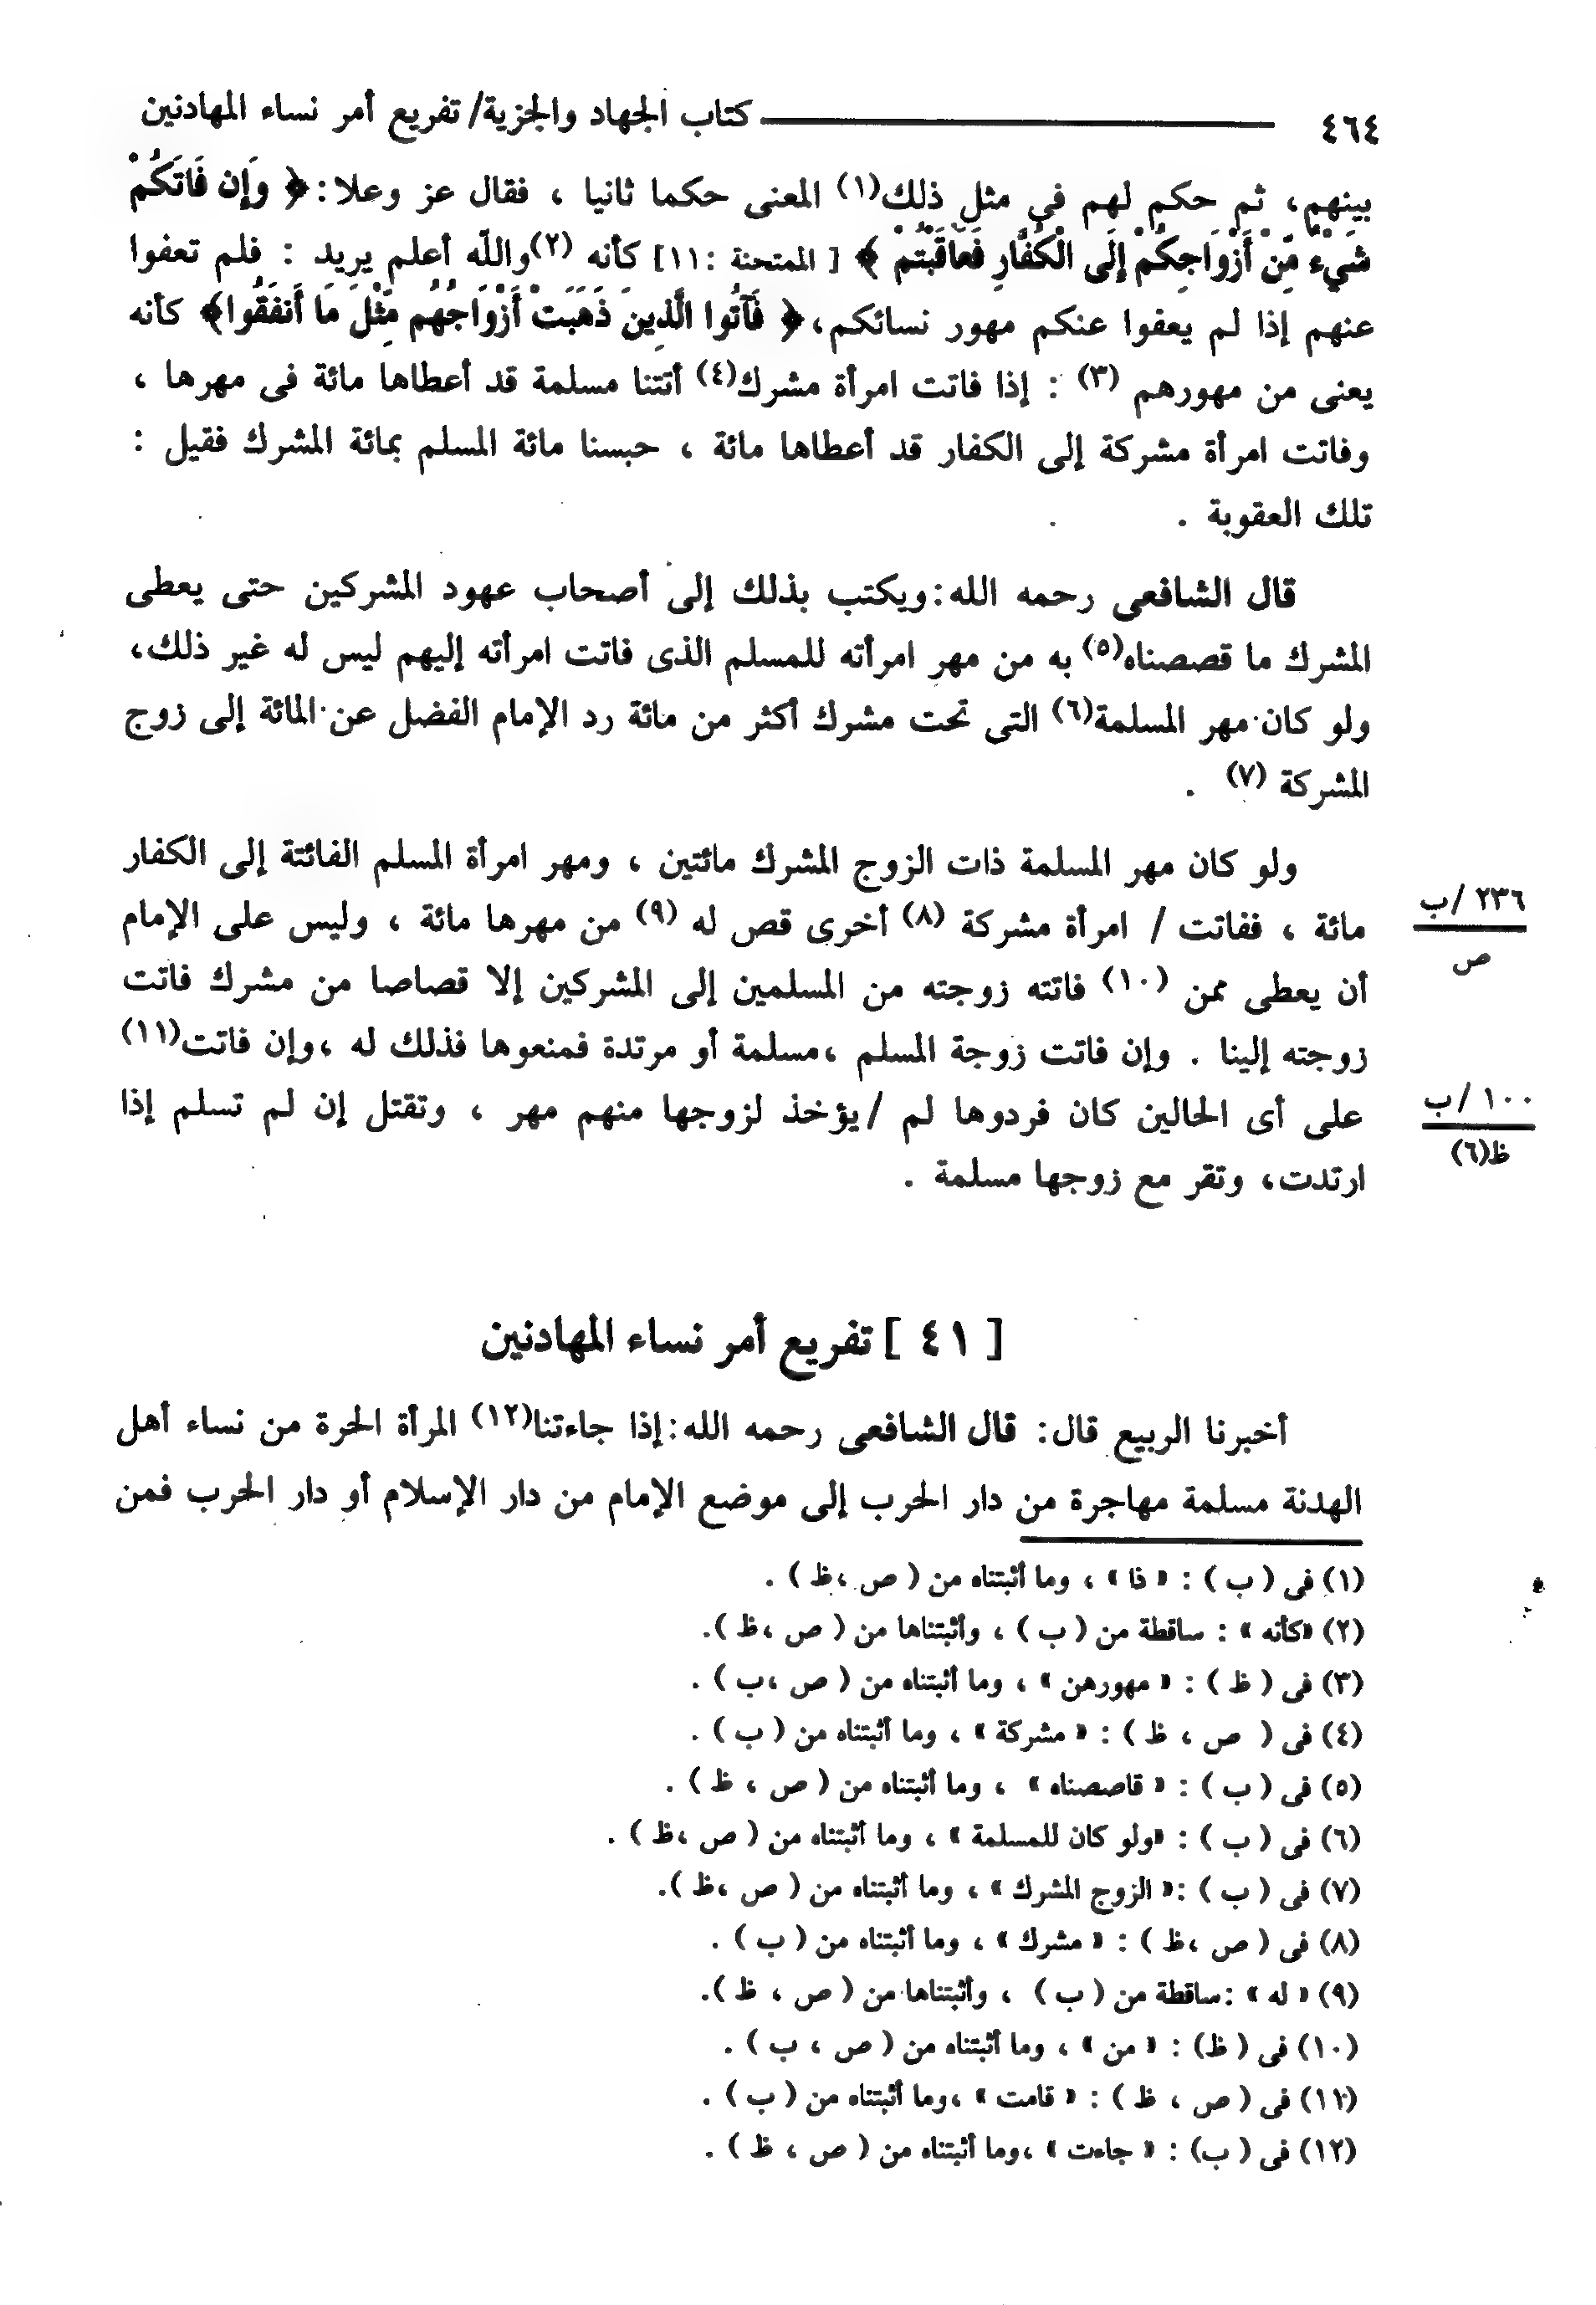 ٤٦٤ كتاب الجهاد والجزية/ تفريع أمر نساء المهادنين
بينهم، ثم حكم لهم فى مثل ذلك(١) المعنى حكما ثانيا ، فقال عز وعلا: ﴿ وَإِن فَاتَكُمْ
شَيْءٌ مِّنْ أَزْوَاجِكُمْ إِلَى الْكُفَّارِ فَعَاقَبْتُمْ ﴾ [ الممتحنة :١١] كأنه (٢)والله أعلم يريد : فلم تعفوا
عنهم إذا لم يعفوا عنكم مهور نسائكم، ﴿ فَآتُوا الَّذِينَ ذَهَبَتْ أَزْوَاجُهُم مِّثْلَ مَا أَنفَقُوا﴾ كأنه
يعنى من مهورهم (٣) : إذا فاتت امرأة مشرك(٤) أتتنا مسلمة قد أعطاها مائة فى مهرها ،
وفاتت امرأة مشركة إلى الكفار قد أعطاها مائة ، حبسنا مائة المسلم بمائة المشرك فقيل :
تلك العقوبة .
قال الشافعى رحمه الله:ويكتب بذلك إلى أصحاب عهود المشركين حتى يعطى
المشرك ما قصصناه(٥) به من مهر امرأته للمسلم الذى فاتت امرأته إليهم ليس له غير ذلك،
ولو كان مهر المسلمة(٦) التى تحت مشرك أكثر من مائة رد الإمام الفضل عن المائة إلى زوج
المشركة (٧) .
ولو كان مهر المسلمة ذات الزوج المشرك مائتين ، ومهر امرأة المسلم الفائتة إلى الكفار
مائة ، ففاتت / امرأة مشركة (٨) أخرى قص له (٩) من مهرها مائة ، وليس على الإمام
٢٣٦ /ب
ص
أن يعطى ممن (١٠) فاتته زوجته من المسلمين إلى المشركين إلا قصاصا من مشرك فاتت
زوجته إلينا . وإن فاتت زوجة المسلم ،مسلمة أو مرتدة فمنعوها فذلك له ،وإن فاتت(١١)
على أى الحالين كان فردوها لم /يؤخذ لزوجها منهم مهر ، وتقتل إن لم تسلم إذا
١٠٠ /ب
ظ(٦)
ارتدت، وتقر مع زوجها مسلمة .
[ ٤١ ] تفريع أمر نساء المهادنين
أخبرنا الربيع قال: قال الشافعى رحمه الله:إذا جاءتنا(١٢) المرأة الحرة من نساء أهل
الهدنة مسلمة مهاجرة من دار الحرب إلى موضع الإمام من دار الإسلام أو دار الحرب فمن
(١) فى ( ب ) : « ذا » ، وما أثبتناه من ( ص ،ظ ) .
(٢) «كأنه » : ساقطة من ( ب ) ، وأثبتناها من ( ص ،ظ ).
(٣) فى ( ظ ) : « مهورهن » ، وما أثبتناه من ( ص ،ب ) .
(٤) فى ( ص ، ظ ) : « مشركة » ، وما أثبتناه من ( ب ) .
(٥) فى ( ب ) : « قاصصناه » ، وما أثبتناه من ( ص ، ظ ) .
(٦) فى ( ب ) : «ولو كان للمسلمة » ، وما أثبتناه من ( ص ،ظ ) .
(٧) فى ( ب ) :« الزوج المشرك » ، وما أثبتناه من ( ص ،ظ ).
(٨) فى ( ص ،ظ ) : « مشرك » ، وما أثبتناه من ( ب ) .
(٩) « له » :ساقطة من ( ب ) ، وأثبتناها من ( ص ، ظ ).
(١٠) فى ( ظ) : « من » ، وما أثبتناه من ( ص ، ب ) .
(١١) فى ( ص ، ظ ) : « قامت » ،وما أثبتناه من ( ب ) .
(١٢) فى ( ب) : « جاءت » ،وما أثبتناه من ( ص ، ظ ) .